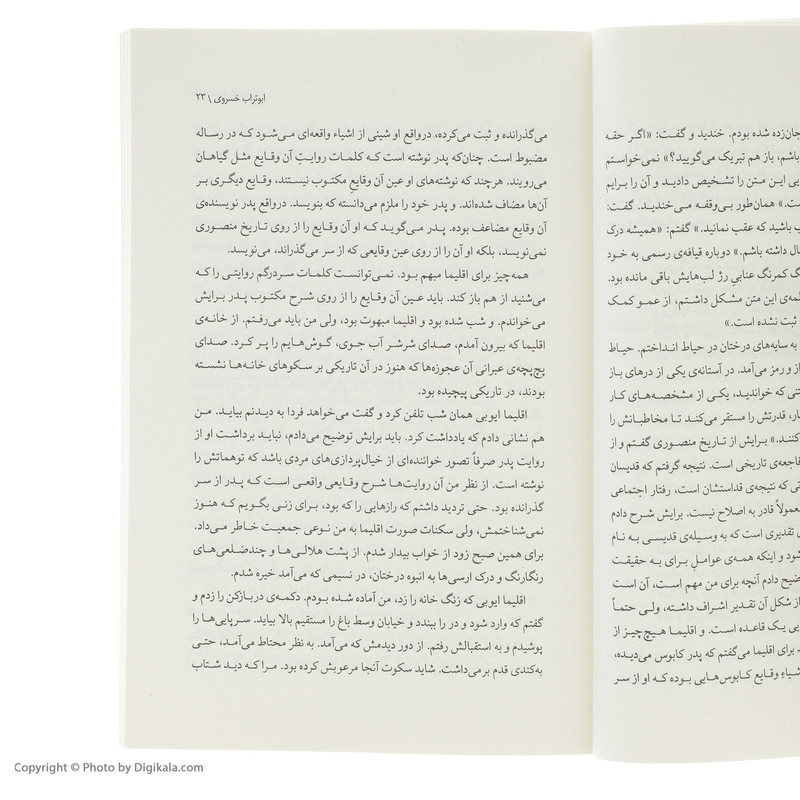 جان‌زده شده بودم. خندید و گفت: «اگر حقه
باشم، باز هم تبریک می‌گویید؟» نمی‌خواستم
این متن را تشخیص دادید و آن را برایم
همان‌طور بی‌وقفه می‌خندید. گفت:
باشید که عقب نمانید.» گفتم: «همیشه درک
داشته باشم.» دوباره قیافه‌ی رسمی به خود
کمرنگ عنابی رژ لب‌هایش باقی مانده بود.
این متن مشکل داشتم، از عمو کمک
ثبت نشده است.»
به سایه‌های درختان در حیاط انداختم. حیاط
از و رمز می‌آمد. در آستانه‌ی یکی از درهای باز
که خواندید، یکی از مشخصه‌های کار
قدرتش را مستقر می‌کند تا مخاطبانش را
برایش از تاریخ منصوری گفتم و از
فاجعه‌ی تاریخی است. نتیجه گرفتم که قدیسان
که نتیجه‌ی قداستشان است، رفتار اجتماعی
معمولاً قادر به اصلاح نیست. برایش شرح دادم
تقدیری است که به وسیله‌ی قدیسی به نام
شود و اینکه همه‌ی عوامل برای به حقیقت
دادم آنچه برای من مهم است، آن است
از شکل آن تقدیر اشراف داشته، ولی حتماً
یک قاعده است. و اقلیما هیچ‌چیز از
برای اقلیما می‌گفتم که پدر کابوس می‌دیده،
وقایع کابوس‌هایی بوده که او از سر
ابوتراب خسروی \ ۲۳
می‌گذرانده و ثبت می‌کرده، درواقع او شیئی از اشیاء واقعه‌ای می‌شود که در رساله
مضبوط است. چنان‌که پدر نوشته است که کلمات روایتِ آن وقایع مثل گیاهان
می‌رویند. هرچند که نوشته‌های او عین آن وقایعِ مکتوب نیستند، وقایع دیگری بر
آن‌ها مضاف شده‌اند. و پدر خود را ملزم می‌دانسته که بنویسد. درواقع پدر نویسنده‌ی
آن وقایع مضاعف بوده. پدر می‌گوید که او آن وقایع را از روی تاریخ منصوری
نمی‌نویسد، بلکه او آن را از روی عین وقایعی که از سر می‌گذراند، می‌نویسد.
همه‌چیز برای اقلیما مبهم بود. نمی‌توانست کلمات سردرگم روایتی را که
می‌شنید از هم باز کند. باید عین آن وقایع را از روی شرح مکتوب پدر برایش
می‌خواندم. و شب شده بود و اقلیما مبهوت بود، ولی من باید می‌رفتم. از خانه‌ی
اقلیما که بیرون آمدم، صدای شرشر آب جوی، گوش‌هایم را پر کرد. صدای
پچ‌پچه‌ی عبرانی آن عجوزه‌ها که هنوز در آن تاریکی بر سکوهای خانه‌ها نشسته
بودند، در تاریکی پیچیده بود.
اقلیما ایوبی همان شب تلفن کرد و گفت می‌خواهد فردا به دیدنم بیاید. من
هم نشانی دادم که یادداشت کرد. باید برایش توضیح می‌دادم، نباید برداشت او از
روایت پدر صرفاً تصور خواننده‌ای از خیال‌پردازی‌های مردی باشد که توهماتش را
نوشته است. از نظر من آن روایت‌ها شرح وقایعی واقعی است که پدر از سر
گذرانده بود. حتی تردید داشتم که رازهایی را که بود، برای زنی بگویم که هنوز
نمی‌شناختمش، ولی سکنات صورت اقلیما به من نوعی جمعیت خاطر می‌داد.
برای همین صبح زود از خواب بیدار شدم. از پشت هلالی‌ها و چندضلعی‌های
رنگارنگ و درک ارسی‌ها به انبوه درختان، در نسیمی که می‌آمد خیره شدم.
اقلیما ایوبی که زنگ خانه را زد، من آماده شده بودم. دکمه‌ی دربازکن را زدم و
گفتم که وارد شود و در را ببندد و خیابان وسط باغ را مستقیم بالا بیاید. سرپایی‌ها را
پوشیدم و به استقبالش رفتم. از دور دیدمش که می‌آمد. به نظر محتاط می‌آمد، حتی
به‌کندی قدم برمی‌داشت. شاید سکوت آنجا مرعوبش کرده بود. مرا که دید شتاب
Copyright © Photo by Digikala.com